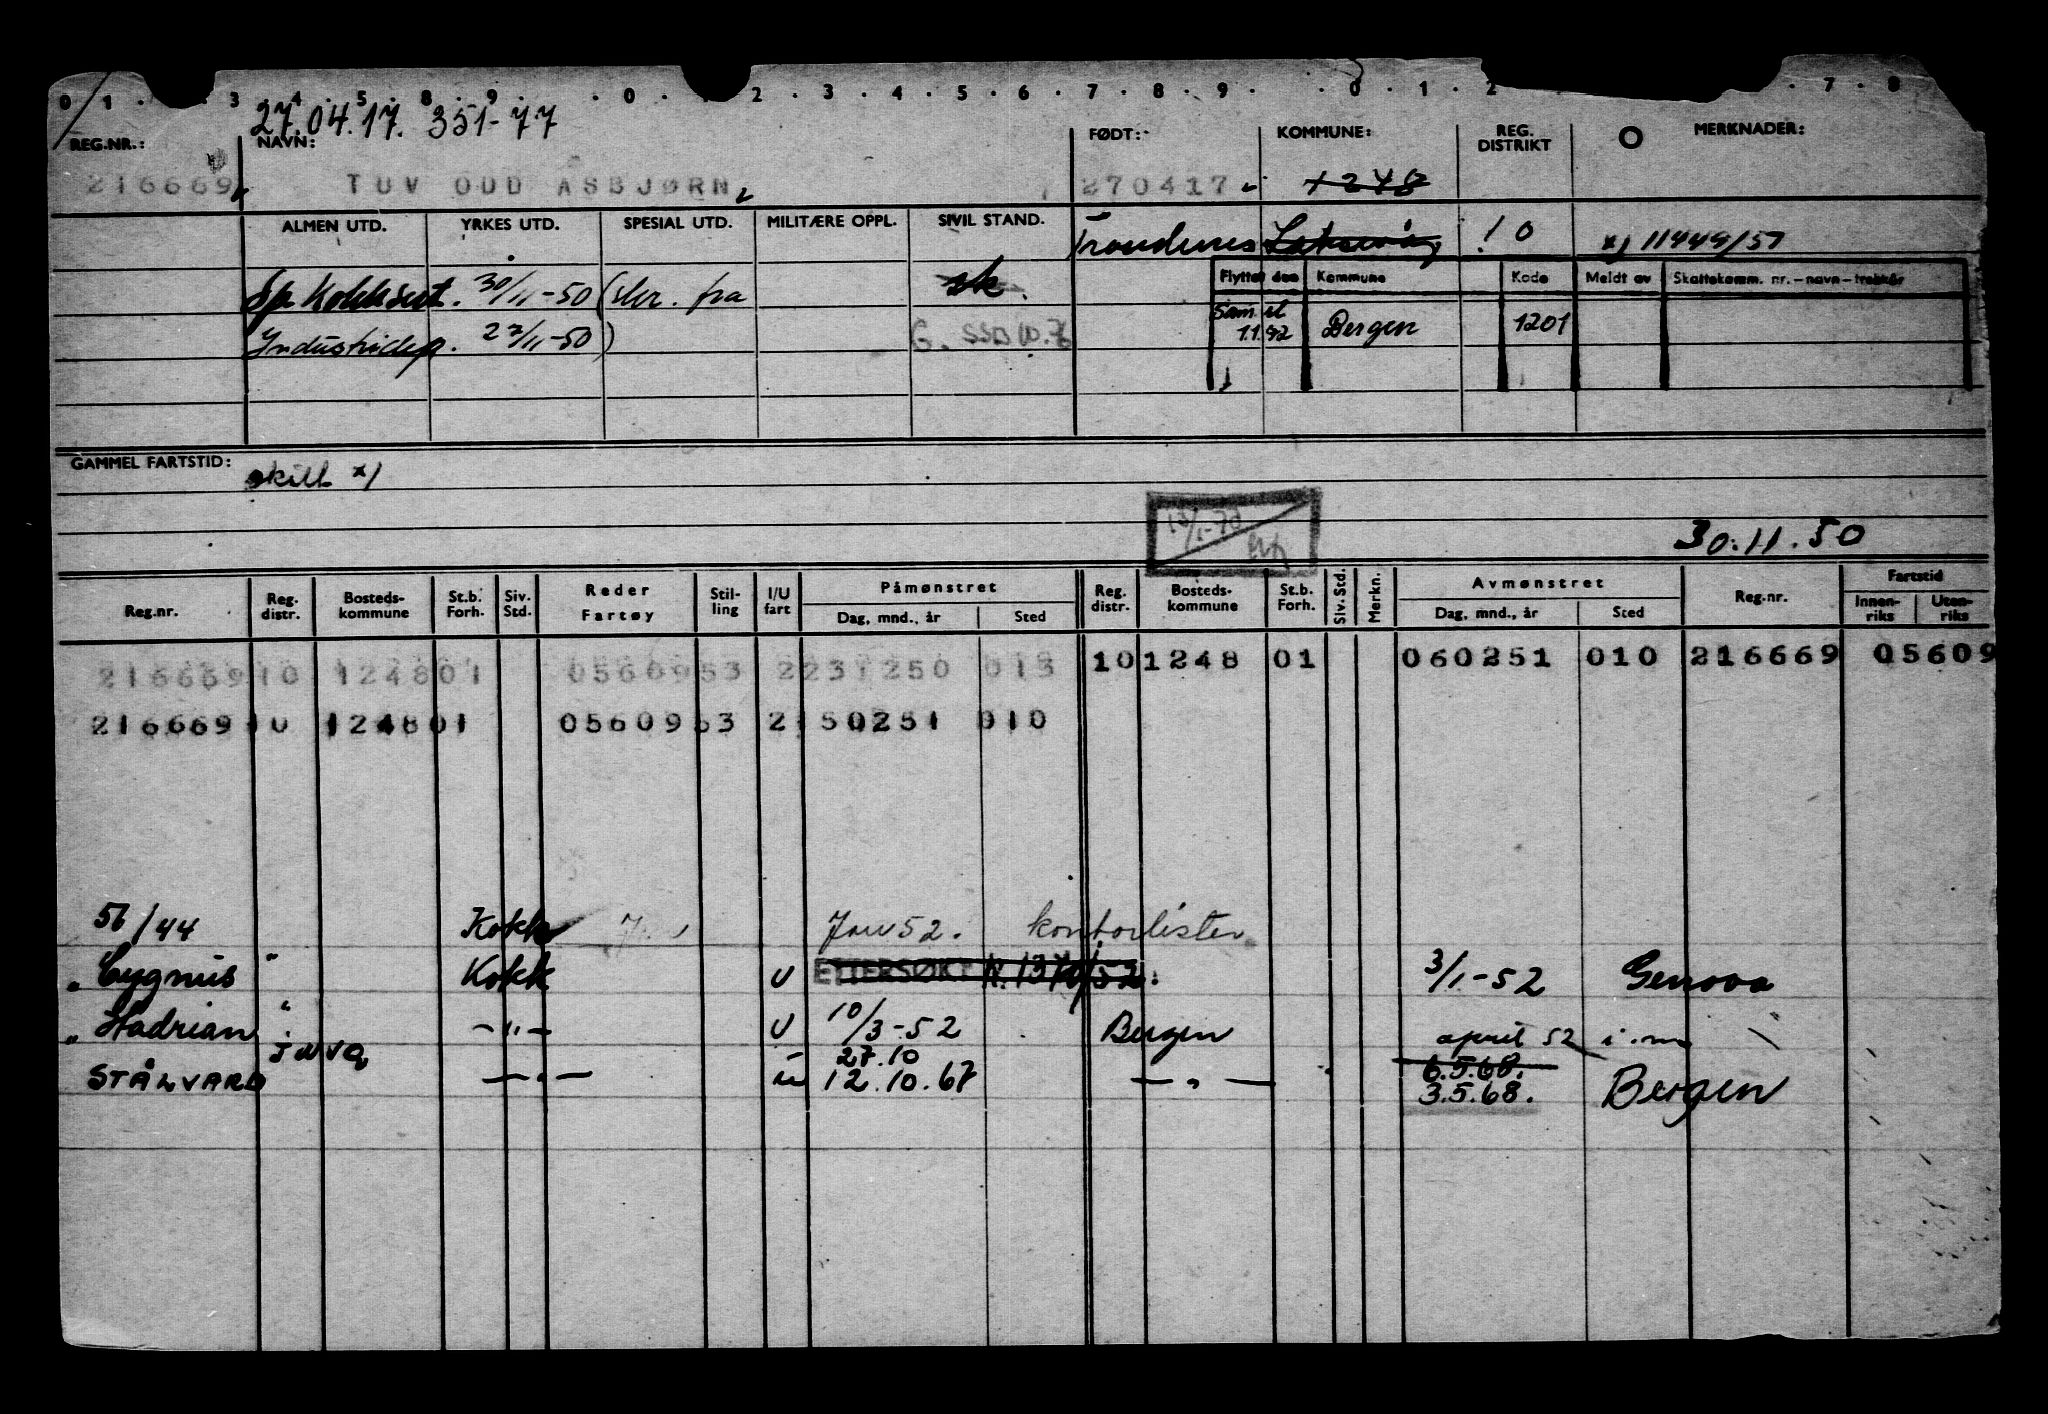 0 1 . 3 4 . 5 . 8 . 9 . . 0 . 1 2 . 3 . 4 . 5 . 6 . 7 . 8 . 9 . . 0 . 1 . 2 . 7 . 8
27.04.17. 351-77
REG.NR.: NAVN: FØDT: KOMMUNE: REG. DISTRIKT O MERKNADER:
216669 TUV ODD ASBJØRN 270417 1248
ALMEN UTD. YRKES UTD. SPESIAL UTD. MILITÆRE OPPL. SIVIL STAND. Trondenes Laksevåg 10 x) 11449/57
Flyttet den Kommune Kode Meldt av Skattekomm. nr.-navn-trekkår
Sp Kokksert. 30/11-50 (skr. fra
Sam.sl 1.1.92 Bergen 1201
Industridep. 22/11-50) G.
GAMMEL FARTSTID: skill x)
13/1-70
30.11.50
Reg.nr. Reg. distr. Bosteds- kommune St.b. Forh. Siv. Std. Reder Fartøy Stil- ling I/U fart Påmønstret Dag, mnd., år Sted Reg. distr. Bosteds- kommune St.b. Forh. Siv. Std. Merkn. Avmønstret Dag, mnd., år Sted Reg.nr. Fartstid Innen- riks Uten- riks
216669 10 1248 01 05609 53 2 231250 013 10 1248 01 060251 010 216669 05609
216669 10 1248 01 05609 53 2 150251 010
56/44 Kokk Jan 52. kontorlister
" Cygnus " Kokk U ETTERSØKT k. 1370/52. 3/1-52 Genova
" Hadrian " -"- U 10/3-52 Bergen april 52 i.m
27.10 6.5.68.
STÅLVARD JWVQ -"- U 12.10.67 -"- 3.5.68. Bergen